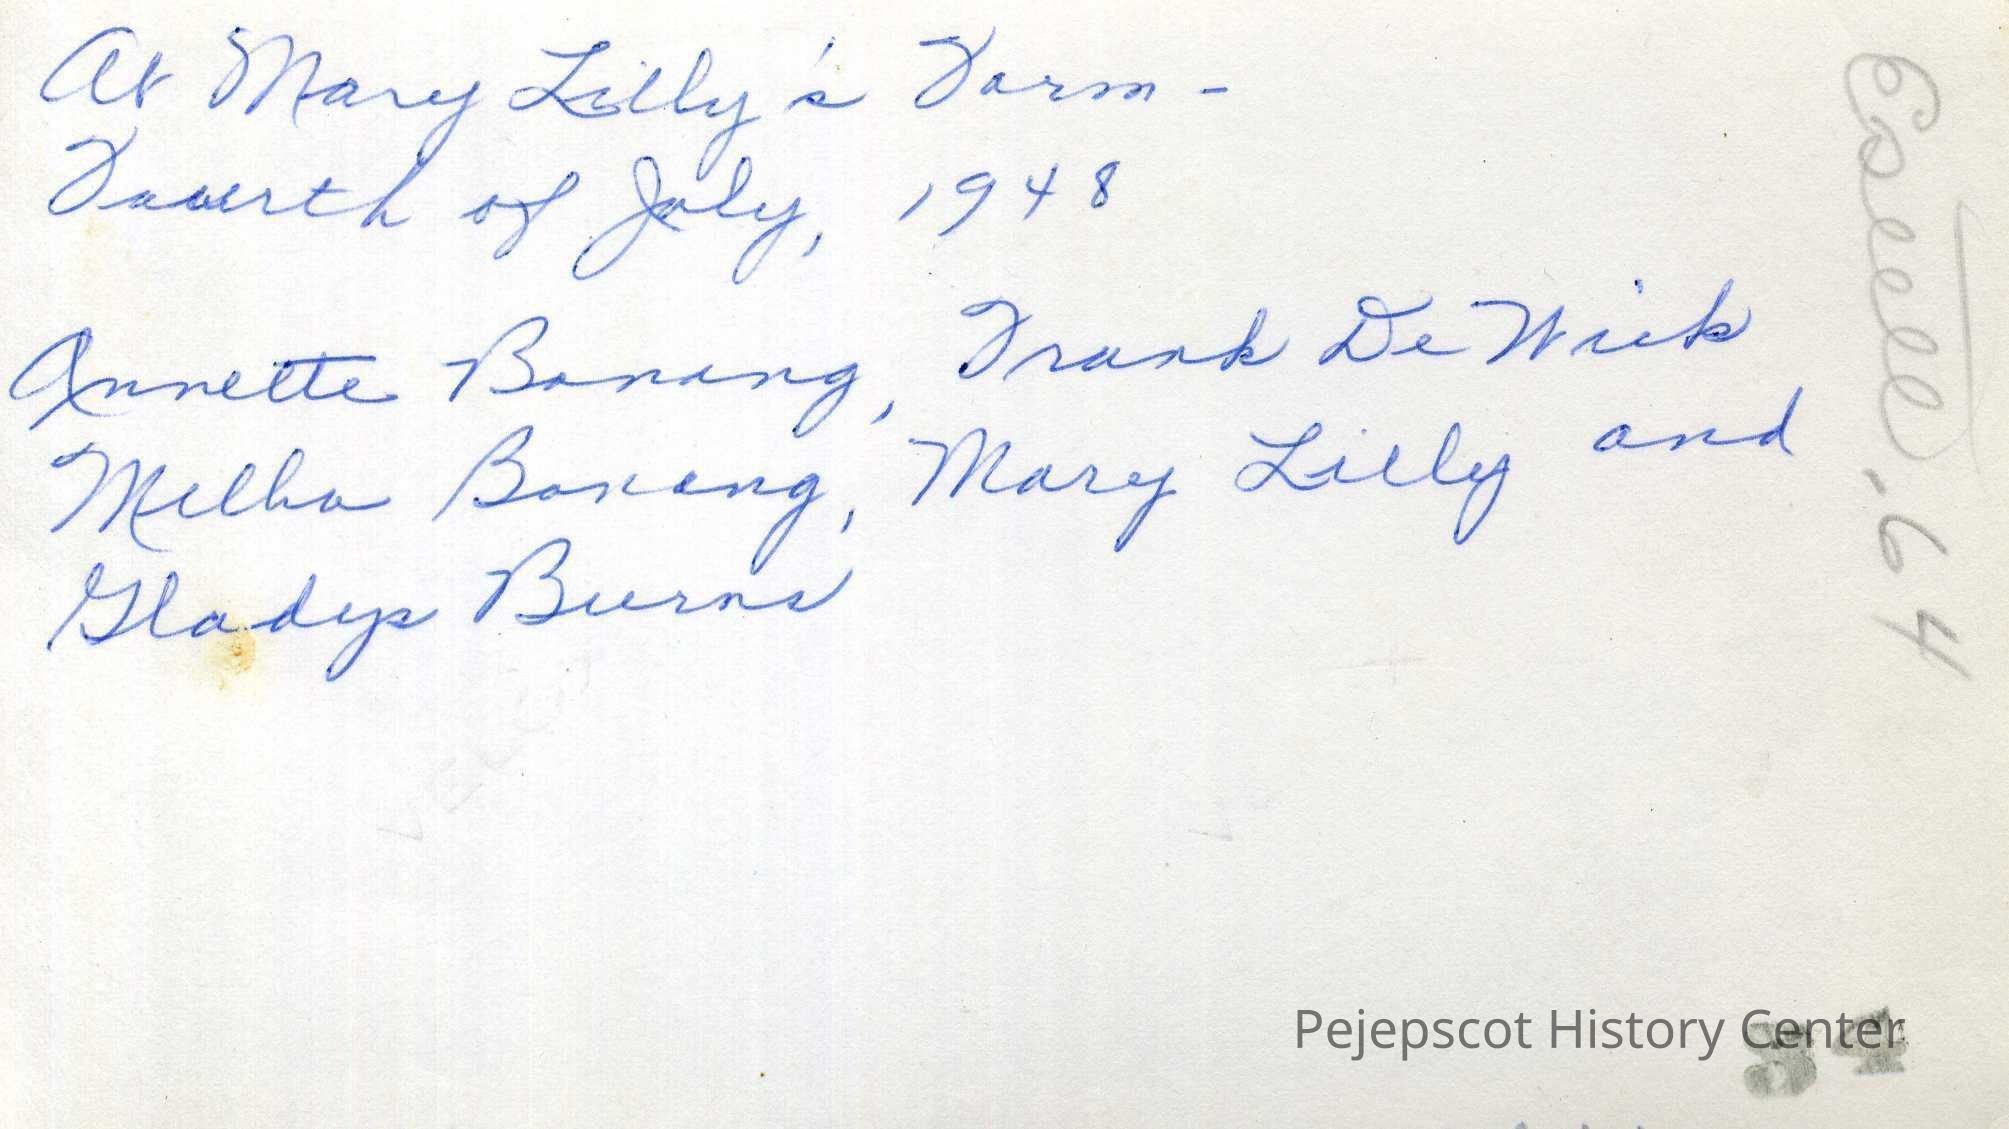 At Mary Lilly's Farm -
Fourth of July, 1948
Annette Bonang, Frank De Wick
Melba Bonang, Mary Lilly and
Gladys Burns
.64
Pejepscot History Center